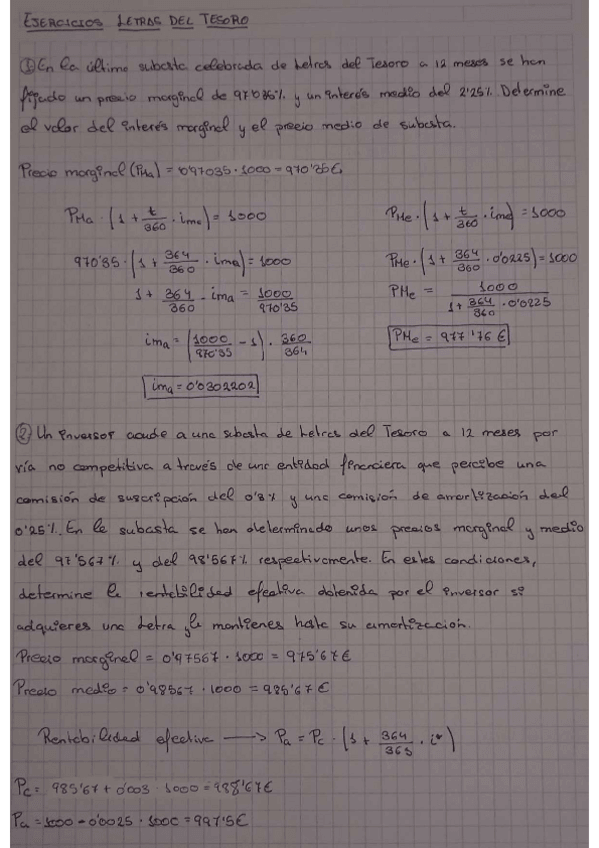 EJERCICIOS LETRAS DEL TESORO
① En la última subasta celebrada de Letras del Tesoro a 12 meses se han
fijado un precio marginal de 97'035% y un interés medio del 2'25%. Determine
el valor del interés marginal y el precio medio de subasta.
Precio marginal (PMa) = 0'97035 · 1000 = 970'35€
PMa · (1 + t/360 · ima) = 1000
970'35 · (1 + 364/360 · ima) = 1000
1 + 364/360 · ima = 1000/970'35
ima = (1000/970'35 - 1) · 360/364
ima = 0'0302202
PMe · (1 + t/360 · ime) = 1000
PMe · (1 + 364/360 · 0'0225) = 1000
PMe = 1000/(1 + 364/360 · 0'0225)
PMe = 977'76 €
② Un inversor acude a una subasta de Letras del Tesoro a 12 meses por
vía no competitiva a través de una entidad financiera que percibe una
comisión de suscripción del 0'3% y una comisión de amortización del
0'25%. En la subasta se han determinado unos precios marginal y medio
del 97'567% y del 98'567% respectivamente. En estas condiciones,
determine la rentabilidad efectiva obtenida por el inversor si
adquieres una Letra y la mantienes hasta su amortización.
Precio marginal = 0'97567 · 1000 = 975'67€
Precio medio = 0'98567 · 1000 = 985'67€
Rentabilidad efectiva → Pa = Pc · (1 + 364/365 · i*)
Pc = 985'67 + 0'003 · 1000 = 988'67€
Pa = 1000 - 0'0025 · 1000 = 997'5€